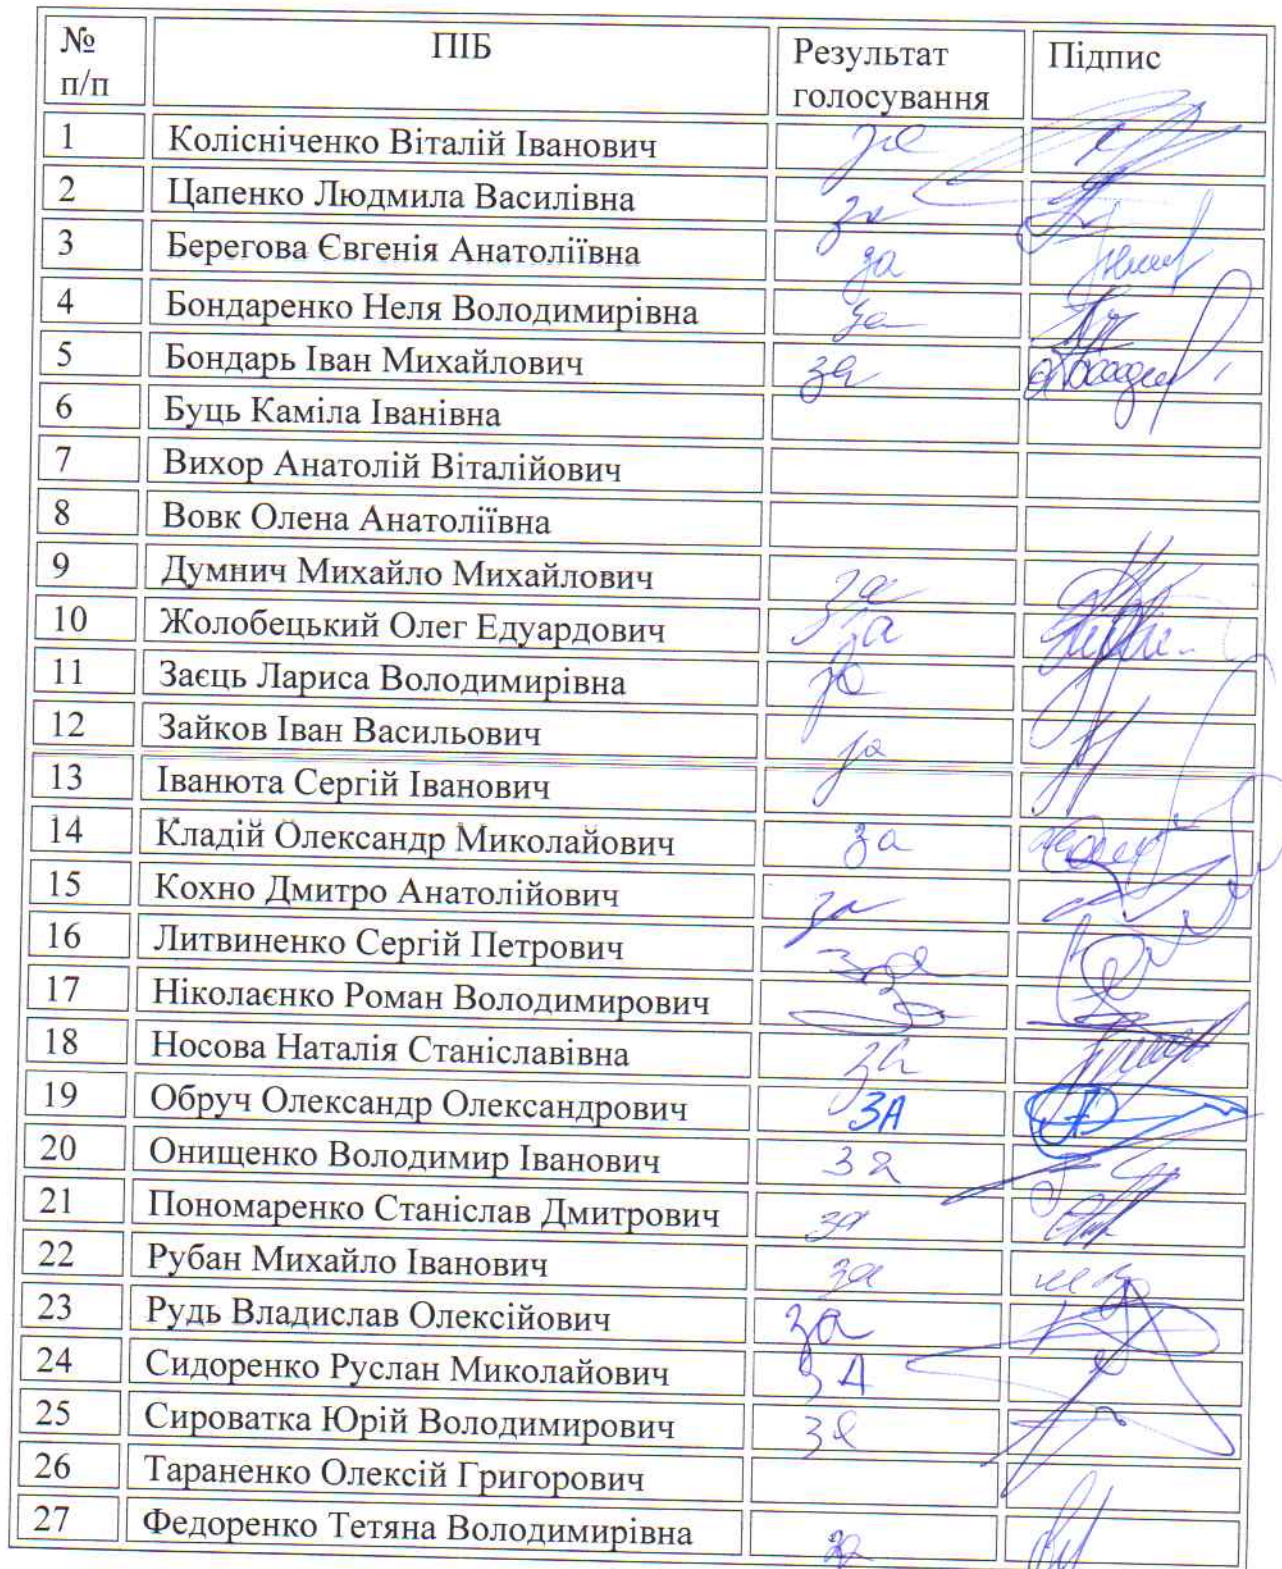 № п/п ПІБ Результат голосування Підпис
1 Колісніченко Віталій Іванович за
2 Цапенко Людмила Василівна за
3 Берегова Євгенія Анатоліївна за
4 Бондаренко Неля Володимирівна за
5 Бондарь Іван Михайлович за
6 Буць Каміла Іванівна
7 Вихор Анатолій Віталійович
8 Вовк Олена Анатоліївна
9 Думнич Михайло Михайлович за
10 Жолобецький Олег Едуардович за
11 Заєць Лариса Володимирівна за
12 Зайков Іван Васильович за
13 Іванюта Сергій Іванович
14 Кладій Олександр Миколайович за
15 Кохно Дмитро Анатолійович за
16 Литвиненко Сергій Петрович за
17 Ніколаєнко Роман Володимирович
18 Носова Наталія Станіславівна за
19 Обруч Олександр Олександрович ЗА
20 Онищенко Володимир Іванович за
21 Пономаренко Станіслав Дмитрович за
22 Рубан Михайло Іванович за
23 Рудь Владислав Олексійович за
24 Сидоренко Руслан Миколайович ЗА
25 Сироватка Юрій Володимирович за
26 Тараненко Олексій Григорович
27 Федоренко Тетяна Володимирівна за